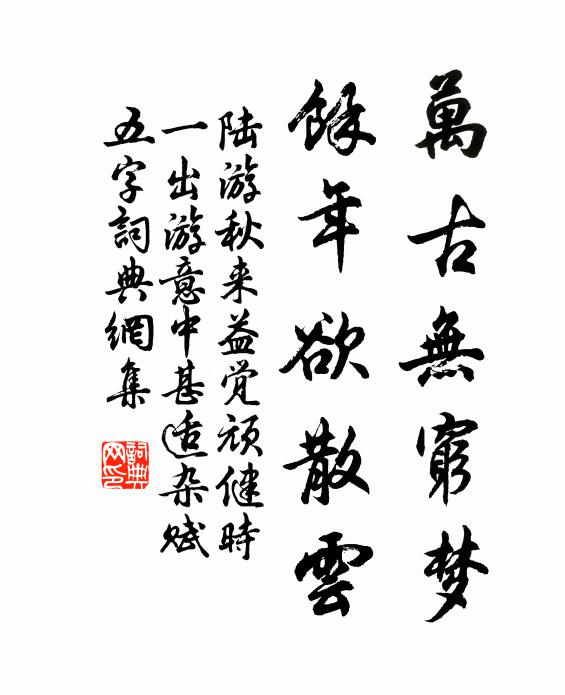 萬古無窮梦
餘年欲散雲
陆游秋来益觉顽健時
一出游意中甚适杂赋
五字詞典網集
詞典
网印